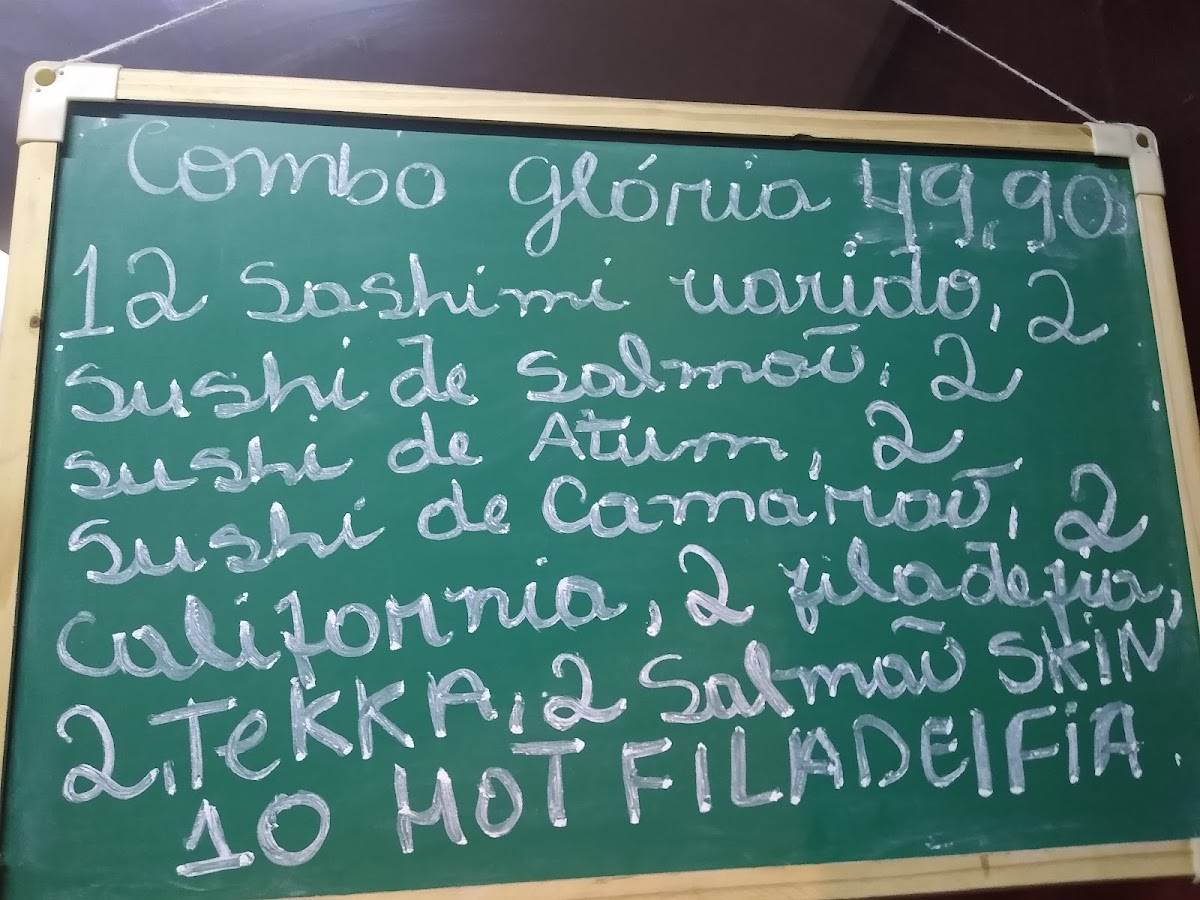 Combo glória 49,90
12 Sashimi varido, 2
sushi de salmaõ, 2
sushi de Atum, 2
sushi de Camaraõ, 2
California, 2 filadefia,
2, TeKKA, 2 Salmaõ SKiN
10 HOT FILADElFiA.